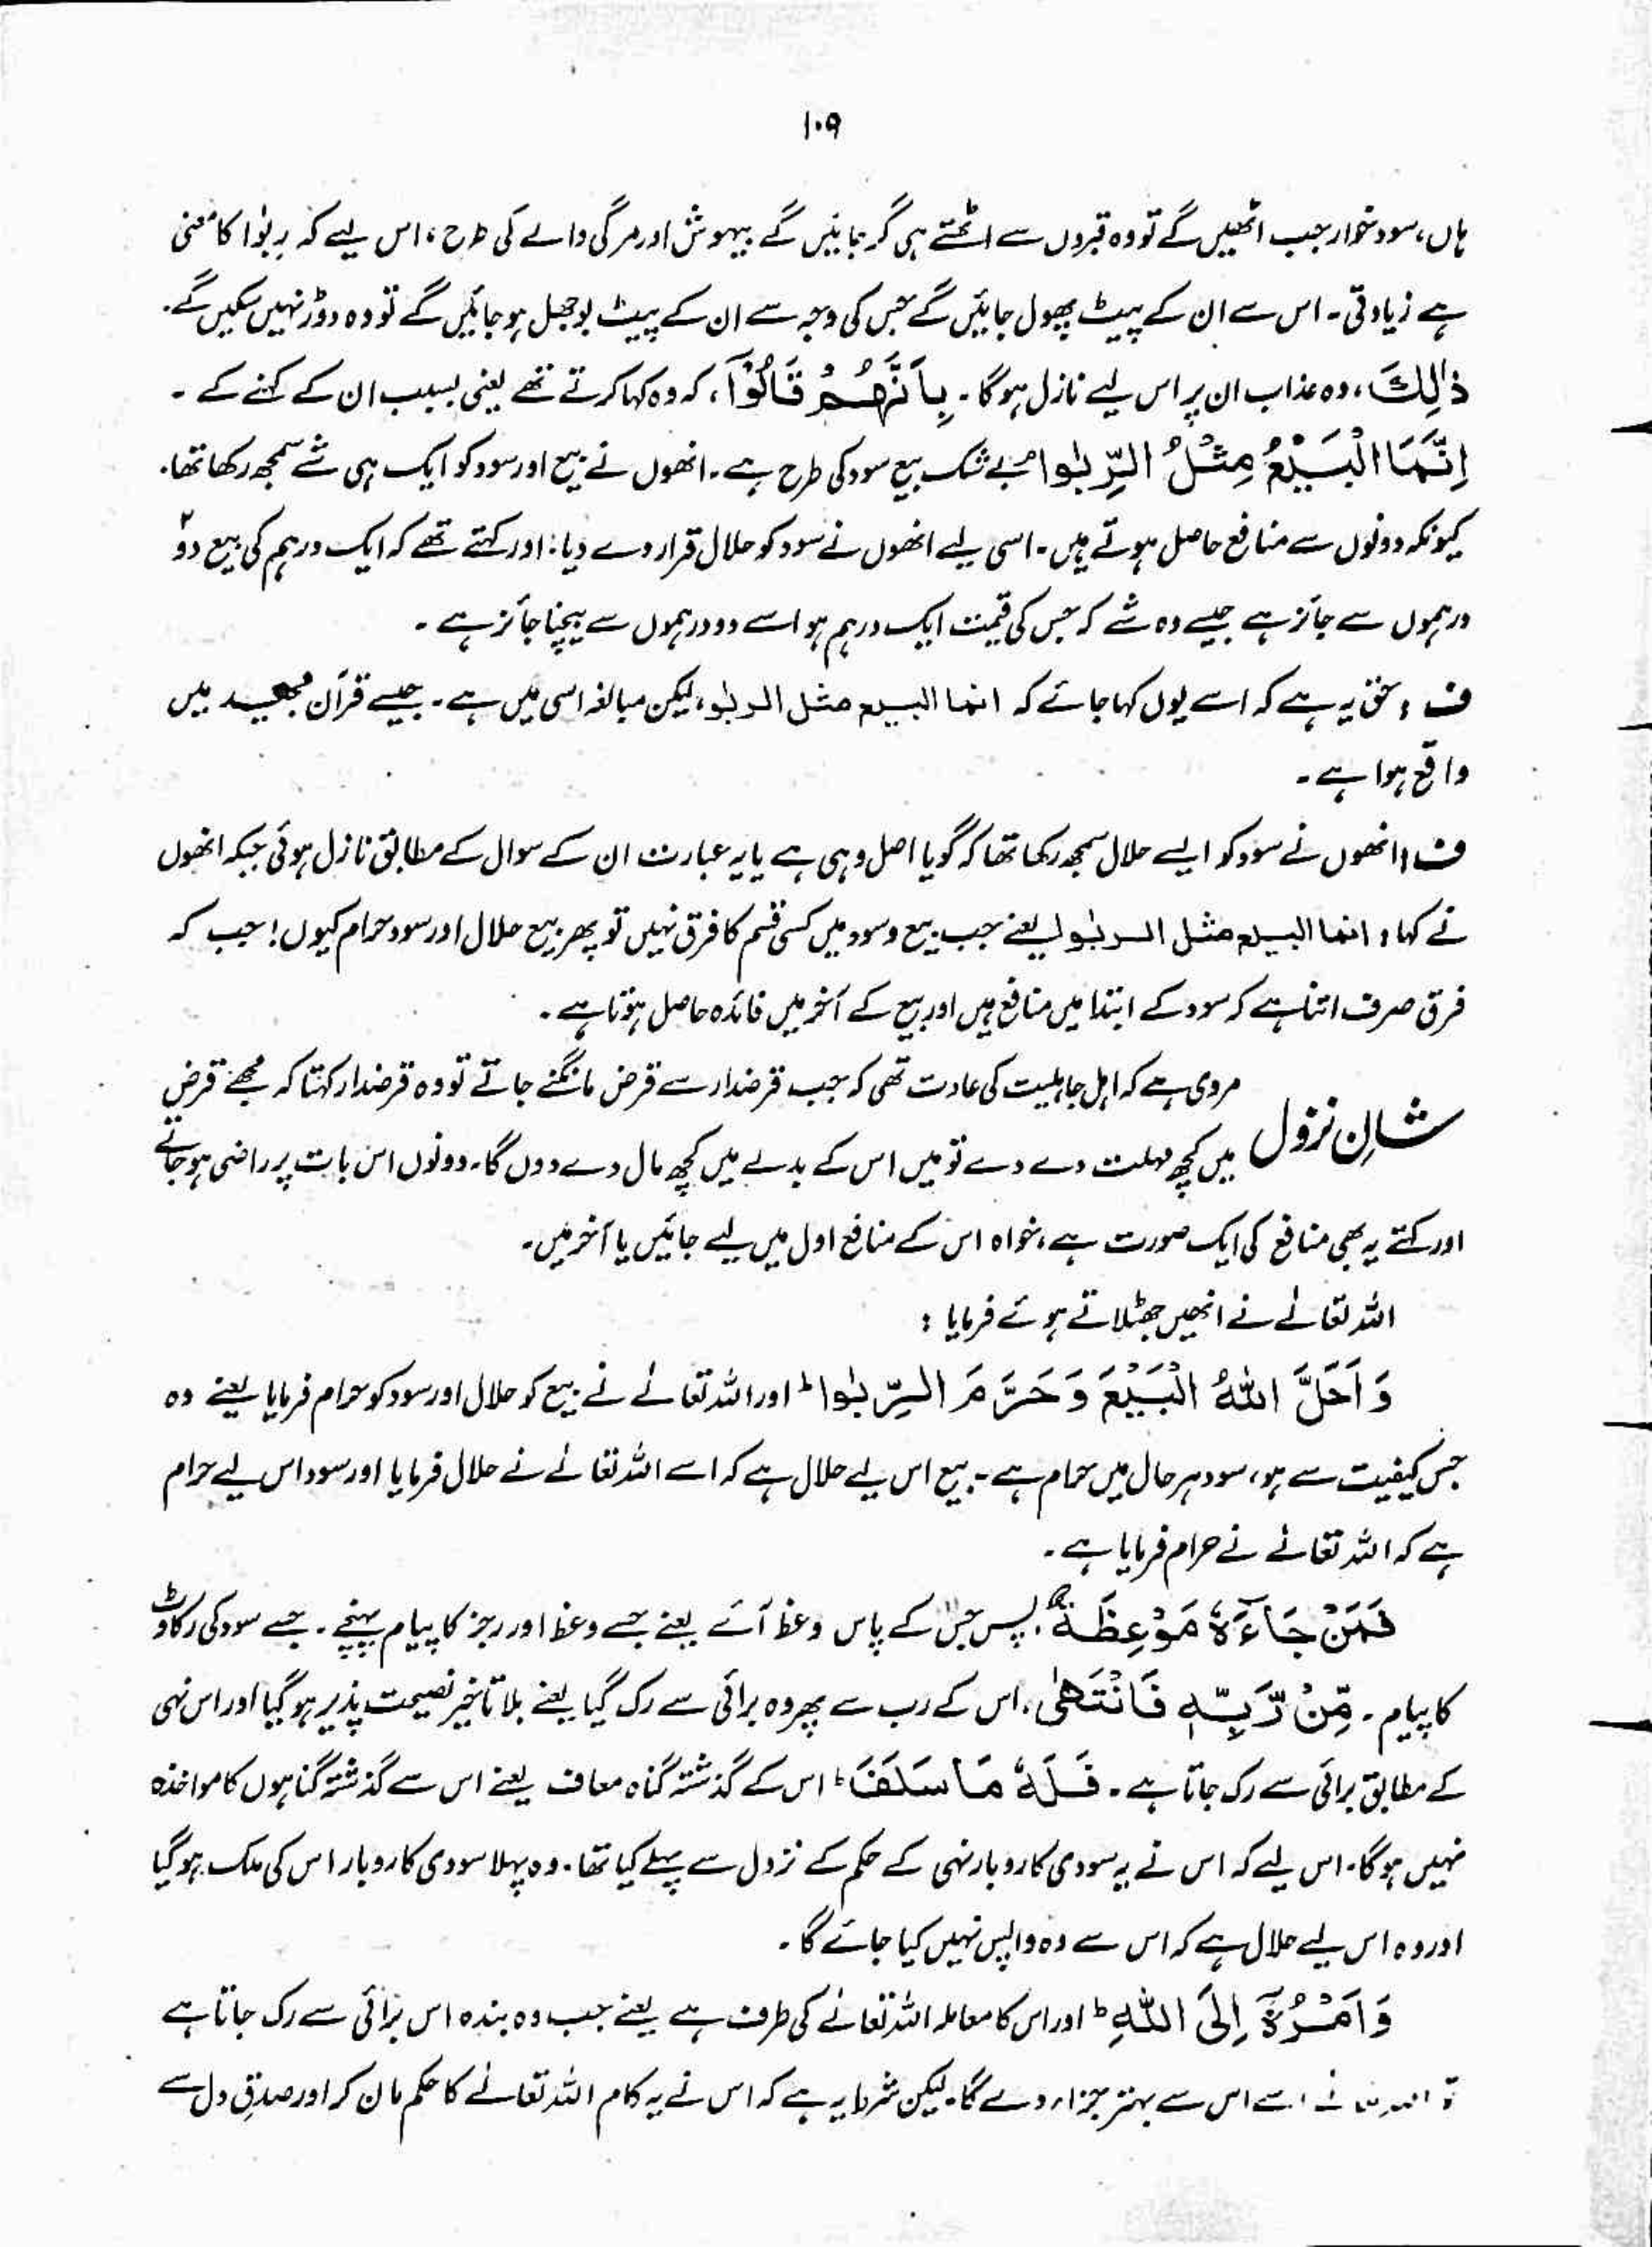 ۱۰۹
ہاں، سود خوار جب اٹھیں گے تو وہ قبروں سے اٹھتے ہی گر جائیں گے بیہوش اور مرگی والے کی طرح، اس لیے کہ ربٰوا کا معنی
ہے زیادتی۔ اس سے ان کے پیٹ پھول جائیں گے جس کی وجہ سے ان کے پیٹ بوجھل ہو جائیں گے تو وہ دوڑ نہیں سکیں گے۔
ذٰلِكَ، وہ عذاب ان پر اس لیے نازل ہوگا۔ بِاَنَّهُمْ قَالُوْٓا، کہ وہ کہا کرتے تھے یعنی بسبب ان کے کہنے کے۔
اِنَّمَا الْبَيْعُ مِثْلُ الرِّبٰوا م بے شک بیع سود کی طرح ہے۔ انھوں نے بیع اور سود کو ایک ہی شے سمجھ رکھا تھا۔
کیونکہ دونوں سے منافع حاصل ہوتے ہیں۔ اسی لیے انھوں نے سود کو حلال قرار دے دیا؛ اور کہتے تھے کہ ایک درہم کی بیع دو
درہموں سے جائز ہے جیسے وہ شے کہ جس کی قیمت ایک درہم ہو اسے دو درہموں سے بیچنا جائز ہے۔
ف : حق یہ ہے کہ اسے یوں کہا جائے کہ انما البیع مثل الربٰو، لیکن مبالغہ اسی میں ہے۔ جیسے قرآن مجید میں
واقع ہوا ہے۔
ف : انھوں نے سود کو ایسے حلال سمجھ رکھا تھا کہ گویا اصل وہی ہے یا یہ عبارت ان کے سوال کے مطابق نازل ہوئی جبکہ انھوں
نے کہا : انما البیع مثل الربٰو لیعنے جب بیع و سود میں کسی قسم کا فرق نہیں تو پھر بیع حلال اور سود حرام کیوں! جب کہ
فرق صرف اتنا ہے کہ سود کے ابتدا میں منافع ہیں اور بیع کے آخر میں فائدہ حاصل ہوتا ہے۔
شانِ نزول مروی ہے کہ اہل جاہلیت کی عادت تھی کہ جب قرضدار سے قرض مانگنے جاتے تو وہ قرضدار کہتا کہ مجھے قرض
میں کچھ مہلت دے دے تو میں اس کے بدلے میں کچھ مال دے دوں گا۔ دونوں اس بات پر راضی ہو جاتے
اور کہتے یہ بھی منافع کی ایک صورت ہے، خواہ اس کے منافع اول میں لیے جائیں یا آخر میں۔
اللہ تعالےٰ نے انھیں جھٹلاتے ہوئے فرمایا :
وَ اَحَلَّ اللّٰهُ الْبَيْعَ وَ حَرَّمَ الرِّبٰوا ؕ اور اللہ تعالےٰ نے بیع کو حلال اور سود کو حرام فرمایا یعنے وہ
جس کیفیت سے ہو، سود ہر حال میں حرام ہے۔ بیع اس لیے حلال ہے کہ اسے اللہ تعالےٰ نے حلال فرمایا اور سود اس لیے حرام
ہے کہ اللہ تعالےٰ نے حرام فرمایا ہے۔
فَمَنْ جَآءَهٗ مَوْعِظَةٌ، پس جس کے پاس وعظ آئے یعنے جسے وعظ اور زجر کا پیام پہنچے۔ جسے سود کی رکاوٹ
کا پیام۔ مِّنْ رَّبِّهٖ فَانْتَهٰى، اس کے رب سے پھر وہ برائی سے رک گیا یعنے بلا تاخیر نصیحت پذیر ہو گیا اور اس نہی
کے مطابق برائی سے رک جاتا ہے۔ فَلَهٗ مَا سَلَفَ ؕ اس کے گذشتہ گناہ معاف یعنے اس سے گذشتہ گناہوں کا مواخذہ
نہیں ہوگا۔ اس لیے کہ اس نے یہ سودی کاروبار نہی کے حکم کے نزول سے پہلے کیا تھا۔ وہ پہلا سودی کاروبار اس کی ملک ہو گیا
اور وہ اس لیے حلال ہے کہ اس سے وہ واپس نہیں کیا جائے گا۔
وَ اَمْرُهٗٓ اِلَى اللّٰهِ ؕ اور اس کا معاملہ اللہ تعالےٰ کی طرف ہے یعنے جب وہ بندہ اس برائی سے رک جاتا ہے
تو اسے اس سے بہتر جزاء دے گا۔ لیکن شرط یہ ہے کہ اس نے یہ کام اللہ تعالےٰ کا حکم مان کر اور صدقِ دل سے